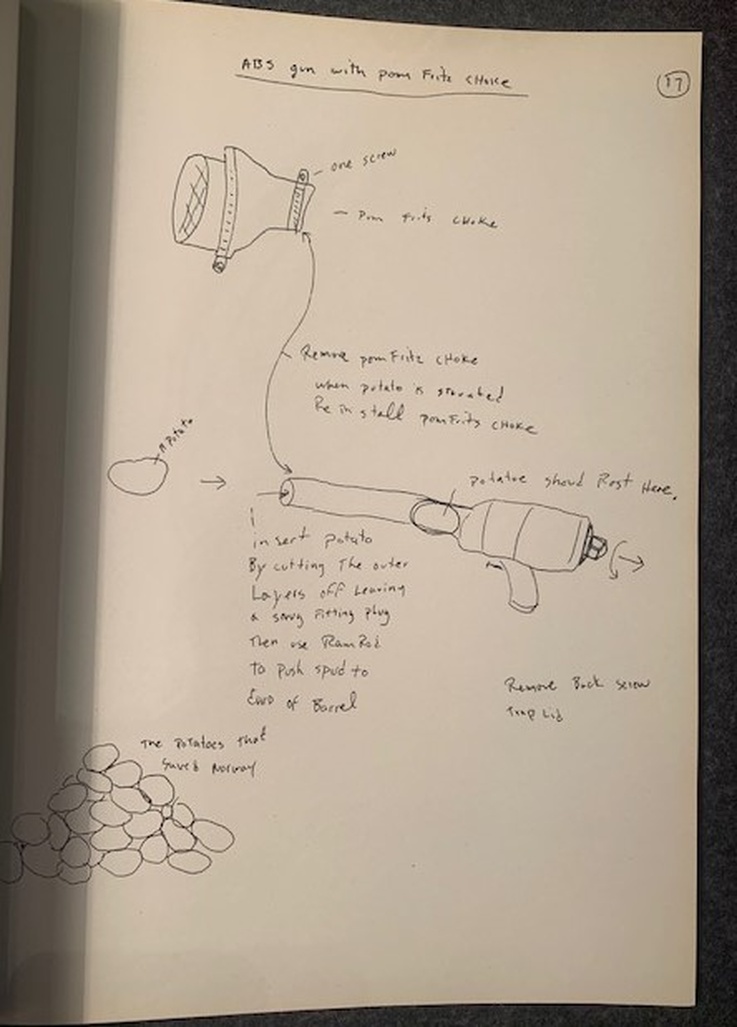 ABS gun with pom Fritz CHOKE
17
one screw
Pom frits CHOKE
Remove pomFritz CHOKE
when potato is
Re in stall pomFrits CHOKE
A Potato
potatoe shoud Rest Here.
insert potato
By cutting The outer
Layers off Leaving
a snug Fitting plug
Then use RamRod
to push spud to
End of Barrel
Remove Back screw
Trap Lid
The Potatoes That
Saved Norway